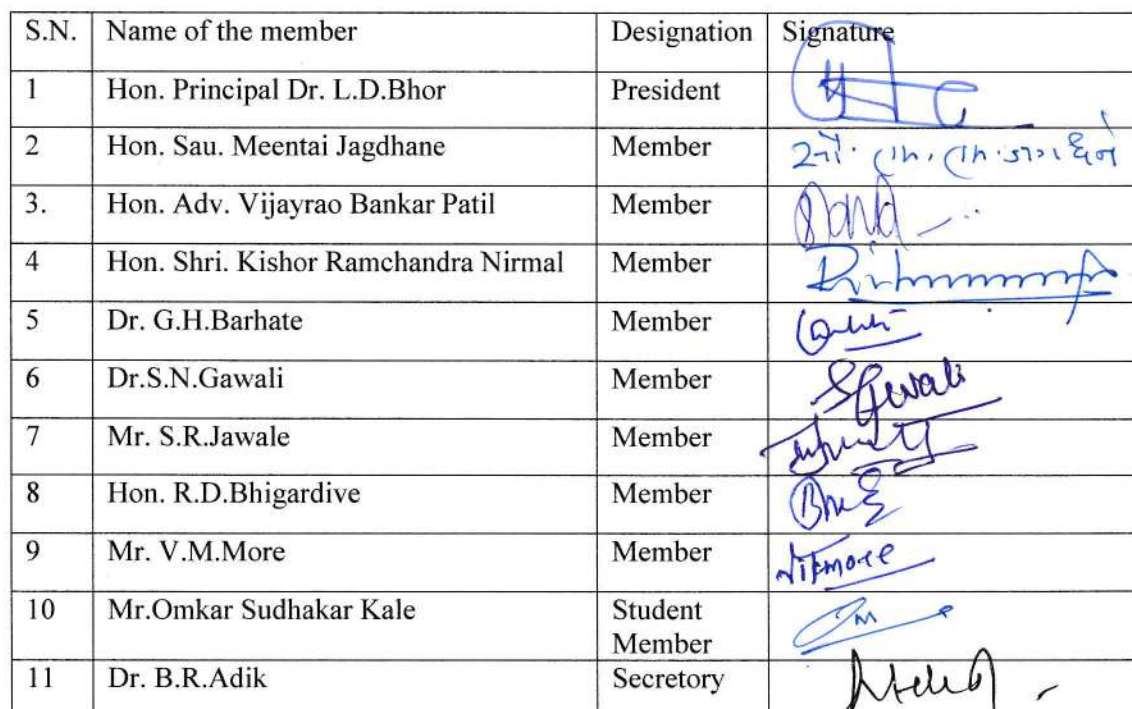 S.N. Name of the member Designation Signature
1 Hon. Principal Dr. L.D.Bhor President
2 Hon. Sau. Meentai Jagdhane Member सौ.
3. Hon. Adv. Vijayrao Bankar Patil Member
4 Hon. Shri. Kishor Ramchandra Nirmal Member
5 Dr. G.H.Barhate Member
6 Dr.S.N.Gawali Member SGawali
7 Mr. S.R.Jawale Member
8 Hon. R.D.Bhigardive Member
9 Mr. V.M.More Member
10 Mr.Omkar Sudhakar Kale Student
Member
11 Dr. B.R.Adik Secretory